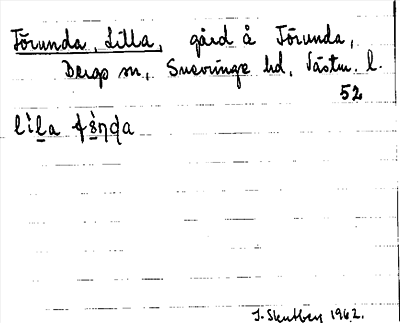 Törunda, Lilla, gård å Törunda,
Bergs sn., Snevringe hd, Västm. l.
52
J. Skutberg 1962.